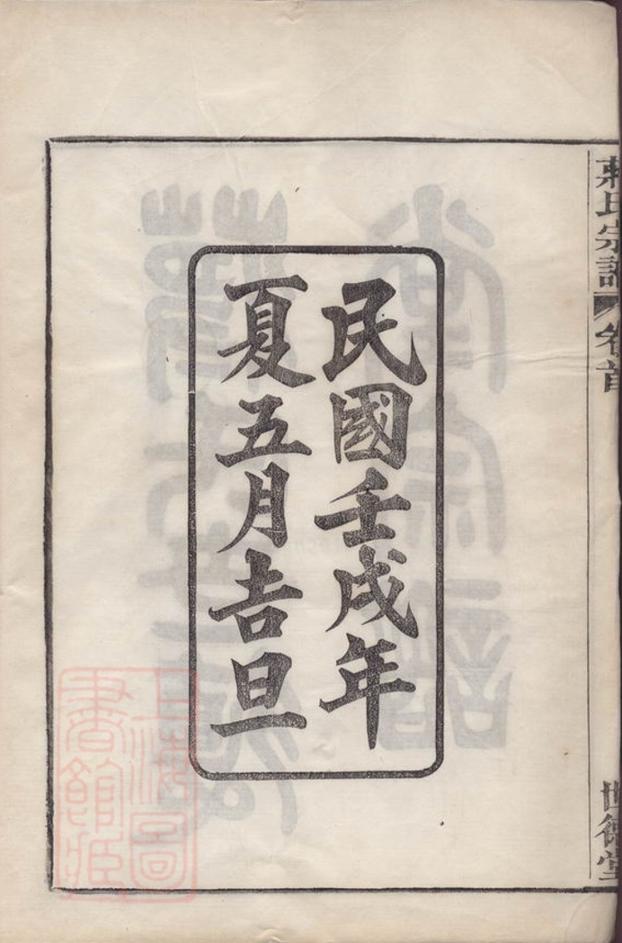 氏宗譜 卷首
世德堂
民國壬戌年
夏五月吉旦
上海圖
書館